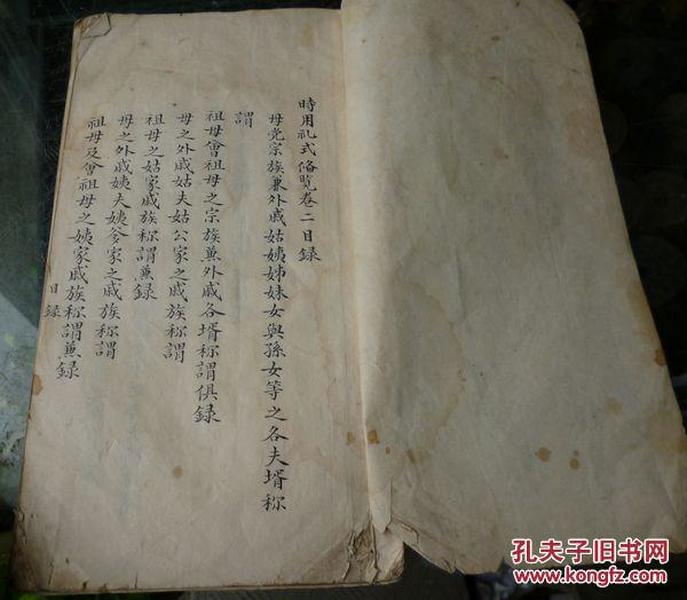 時用礼式俻覽卷二目録
母党宗族兼外戚姑姨姊妹女與孫女等之各夫壻称
謂
祖母曾祖母之宗族兼外戚各壻称謂俱録
母之外戚姑夫姑公家之戚族称謂
祖母之姑家戚族称謂兼録
母之外戚姨夫姨爹家之戚族称謂
祖母及曾祖母之姨家戚族称謂兼録
目録
孔夫子旧书网
www.kongfz.com